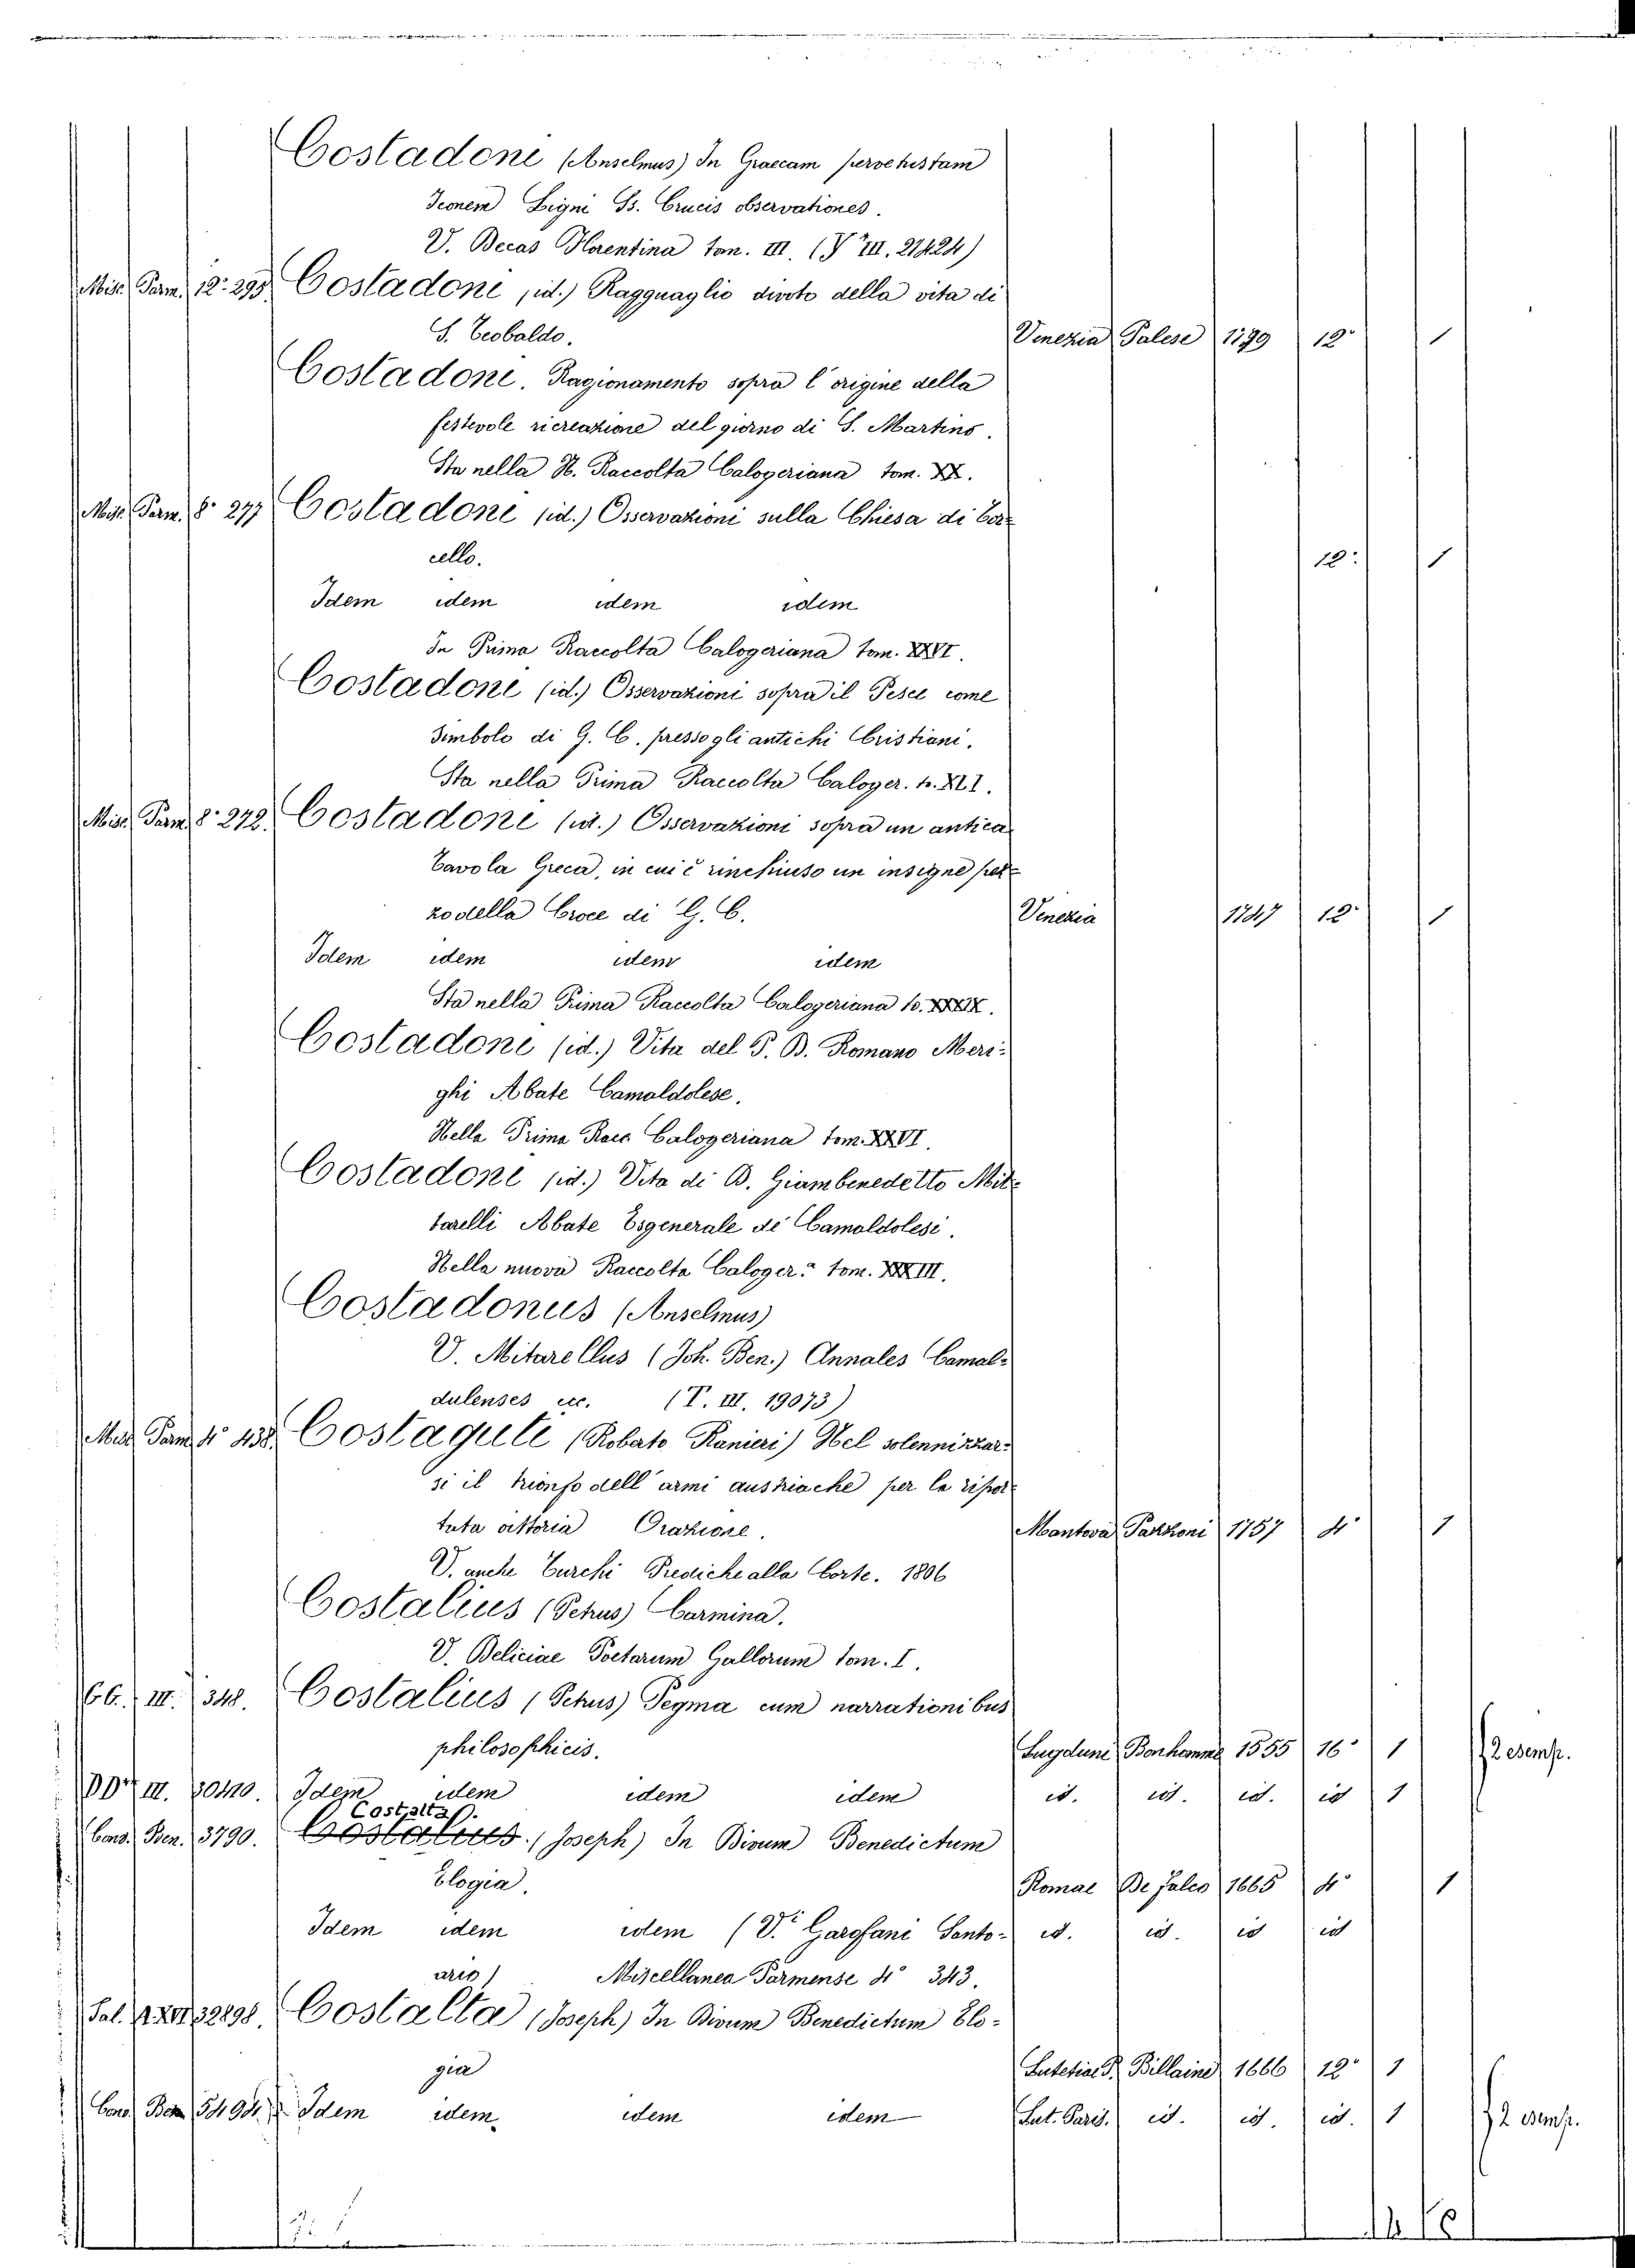 Costadoni (Anselmus) In Graecam pervetustam
Iconem Ligni Ss. Crucis observationes.
V. Decas Florentina tom. III. (VIII. 21424)
Misc. Parm. 12.° 295. Costadoni (id.) Ragguaglio divoto della vita di
S. Teobaldo. Venezia Palese 1799 12° 1
Costadoni. Ragionamento sopra l'origine della
festevole ricreazione del giorno di S. Martino.
Sta nella N. Raccolta Calogeriana tom. XX.
Misc. Parm. 8° 277 Costadoni (id.) Osservazioni sulla Chiesa di Tor=
cello. 12: 1
Idem idem idem idem
In Prima Raccolta Calogeriana tom. XXVI.
Costadoni (id.) Osservazioni sopra il Pesce come
Simbolo di G. C. presso gli antichi Cristiani.
Sta nella Prima Raccolta Caloger. t. XLI.
Misc. Parm. 8° 272. Costadoni (id.) Osservazioni sopra un antica
Tavola Greca, in cui è rinchiuso un insigne pez=
zo della Croce di G. C. Venezia 1747 12° 1
Idem idem idem idem
Sta nella Prima Raccolta Calogeriana to. XXXIX.
Costadoni (id.) Vita del P. B. Romano Meri=
ghi Abate Camaldolese.
Nella Prima Racc. Calogeriana tom. XXVI.
Costadoni (id.) Vita di B. Giambenedetto Mit=
tarelli Abate Exgenerale de Camaldolesi.
Nella nuova Raccolta Caloger.ª tom. XXXIII.
Costadonus (Anselmus)
V. Mitarellus (Joh. Ben.) Annales Camal=
dulenses ecc. (T. III. 19073)
Misc. Parm. 4° 438. Costagute (Robato Ranieri) Nel solennizzar=
si il trionfo dell'armi austriache per la ripor=
tata vittoria Orazione. Mantova Pazzoni 1757 4° 1
V. anche Turchi Prediche alla Corte. 1806
Costalius (Petrus) Carmina.
V. Deliciae Poetarum Gallorum tom. I.
III. 348. Costalius (Petrus) Pegma cum narrationibus
philosophicis. Lugduni Bonhomme 1555 16° 1 2 esemp.
III. 30410. Idem idem idem idem id. id. id. id 1
Costalta.
Cons. Ben. 3790. Costalius. (Joseph) In Divum Benedictum
Elogia. Romae De Falco 1665 4° 1
Idem idem idem (V.i Garofani Santo= id. id. id id
ario) Miscellanea Parmense 4° 343.
Pal. 32898. Costalta (Joseph) In Divum Benedictum Elo=
gia Lutetiae P. Billaine 1666 12° 1
Cons. Ben 5494. Idem idem idem idem Lut. Paris. id. id. id. 1 2 esemp.